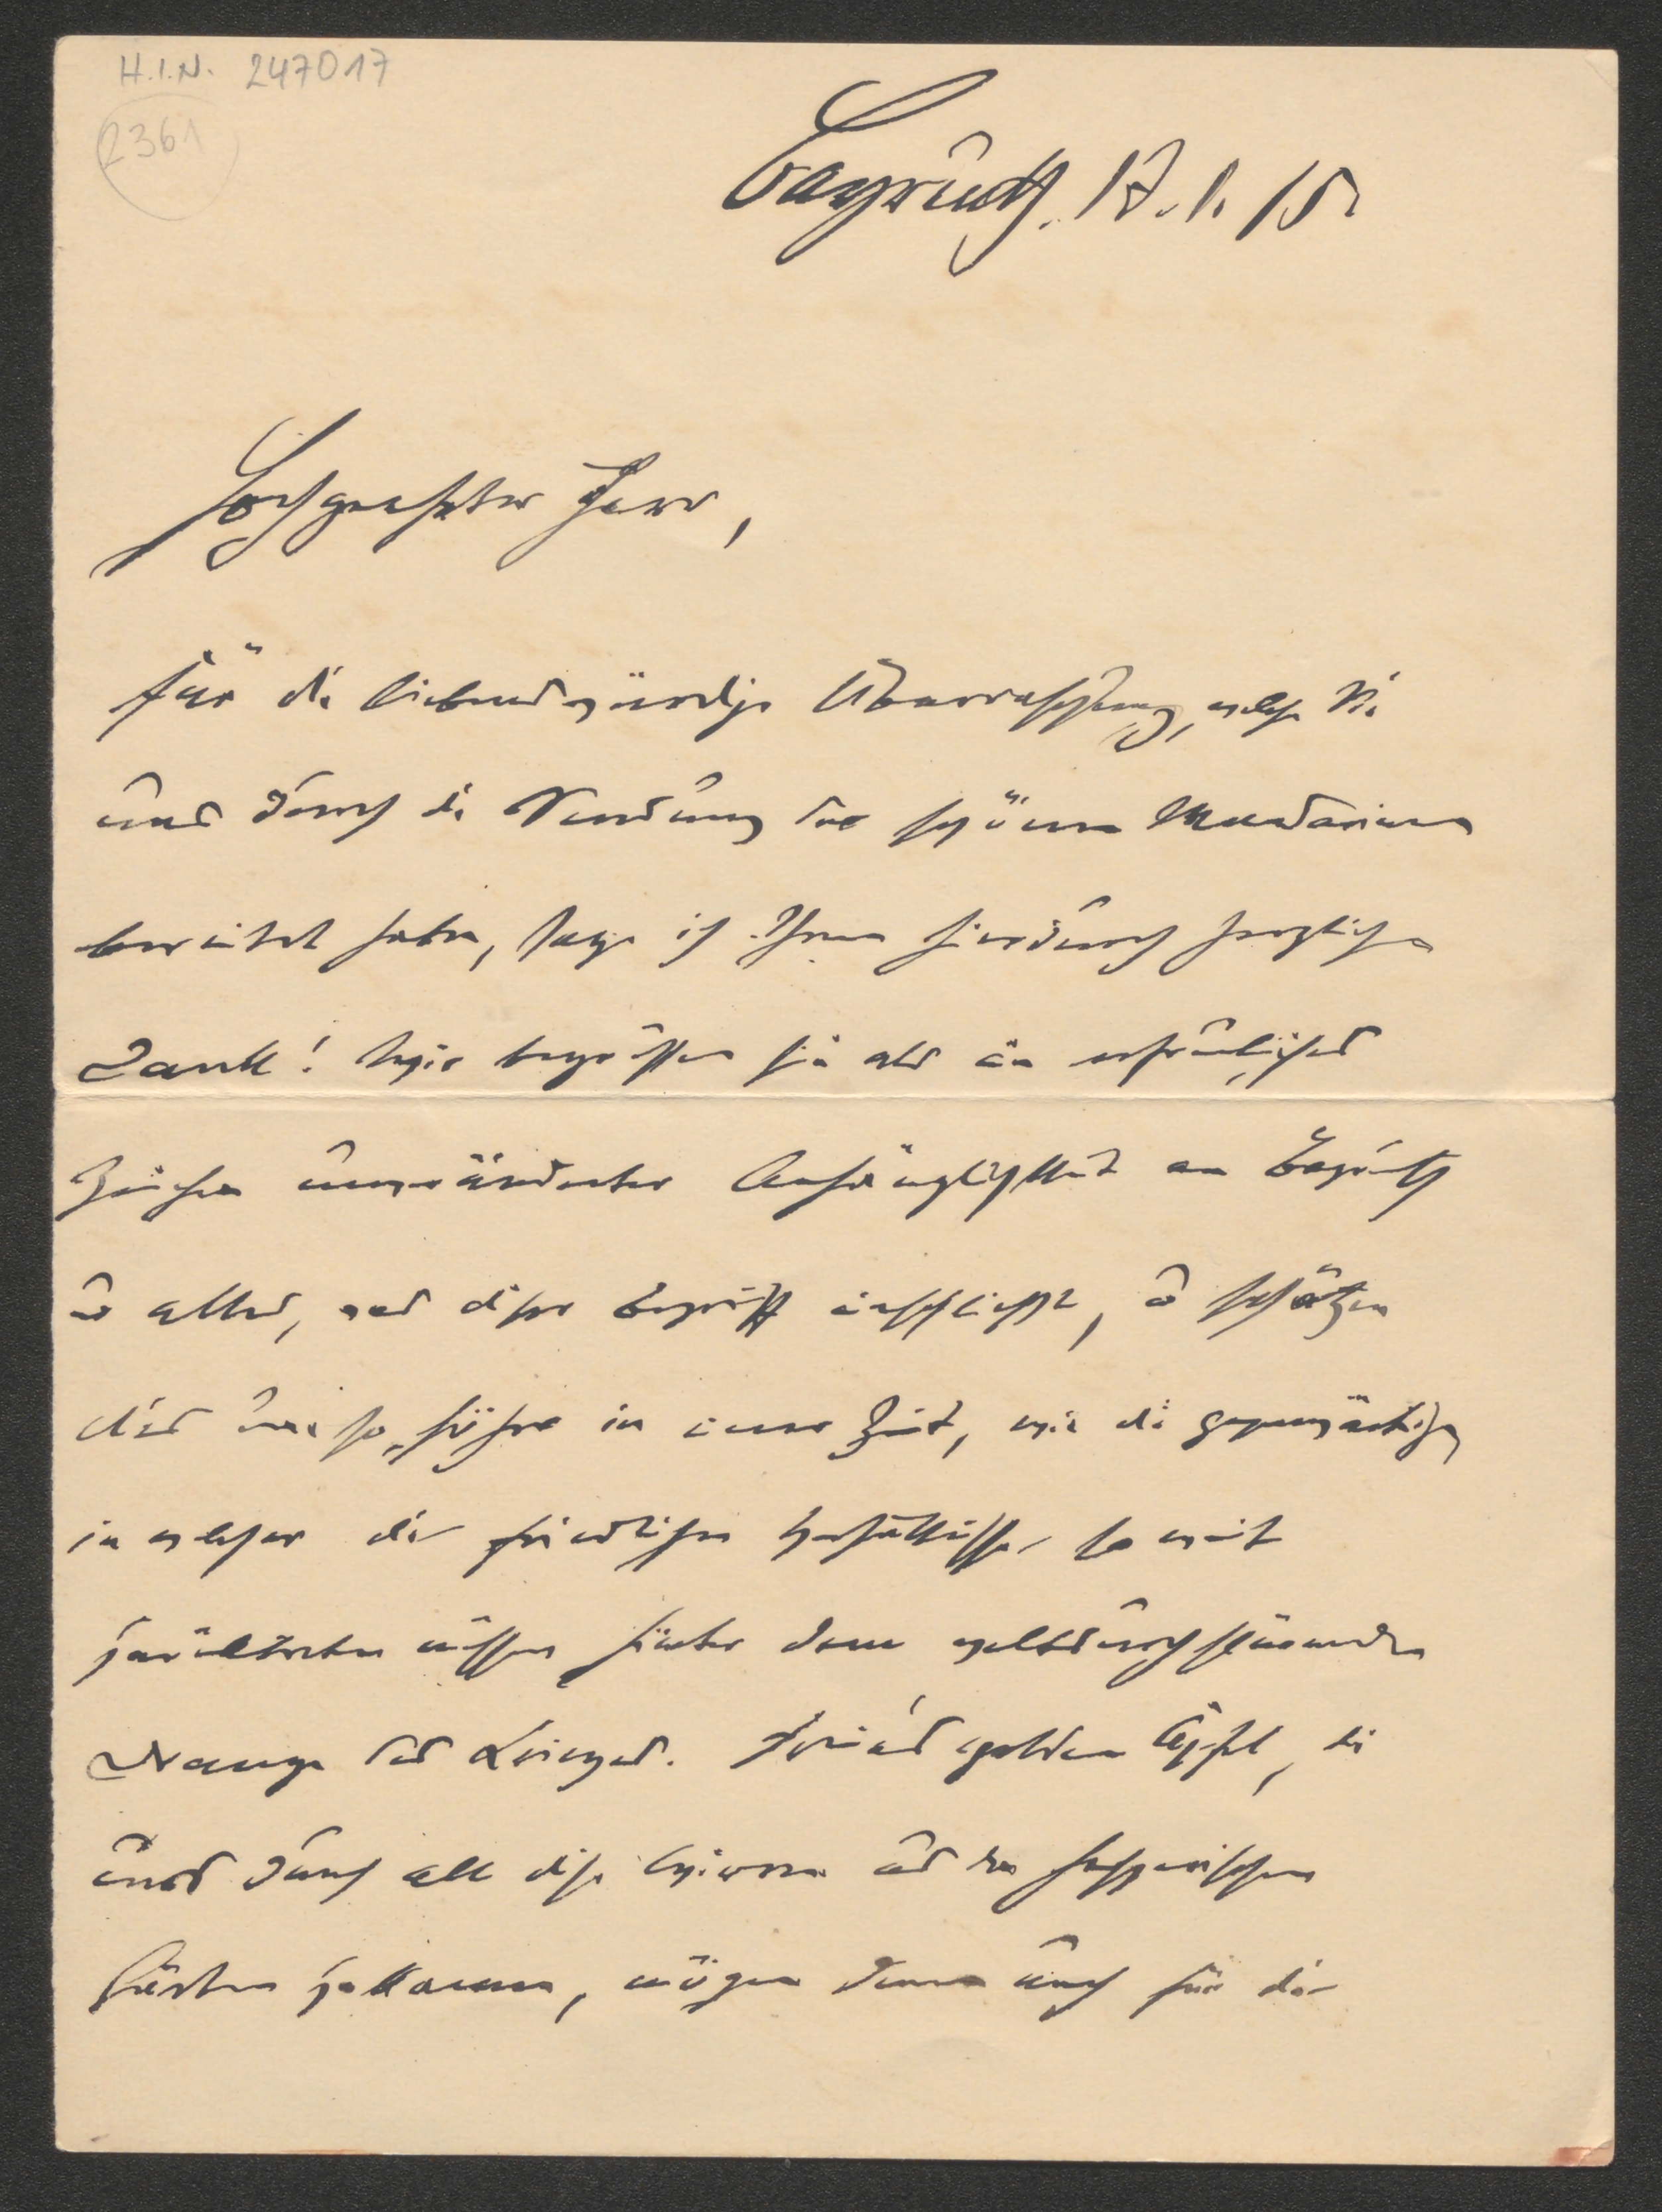 H.I.N. 247017
2361
Bayreuth, 17. 1. 15.
Hochgeehrter Herr,
für die liebenswürdige Überraschung, welche Sie
uns durch die Sendung der schönen Mandarinen
bereitet haben, sage ich Ihnen hierdurch herzlichen
Dank! Wir begrüssen sie als ein erfreuliches
Zeichen unveränderter Anhänglichkeit an Bayreuth
u alles, was dieser Begriff einschliesst, u schätzen
dies um so höher in einer Zeit, wie die gegenwärtige,
in welcher die friedlichen Verhältnisse so weit
zurücktreten müssen hinter dem weltdurchstürmenden
Drange des Krieges. Die goldenen Äpfel, die
uns durch all diese Wirren aus den hesperischen
Gärten zukamen, mögen denn auch für die